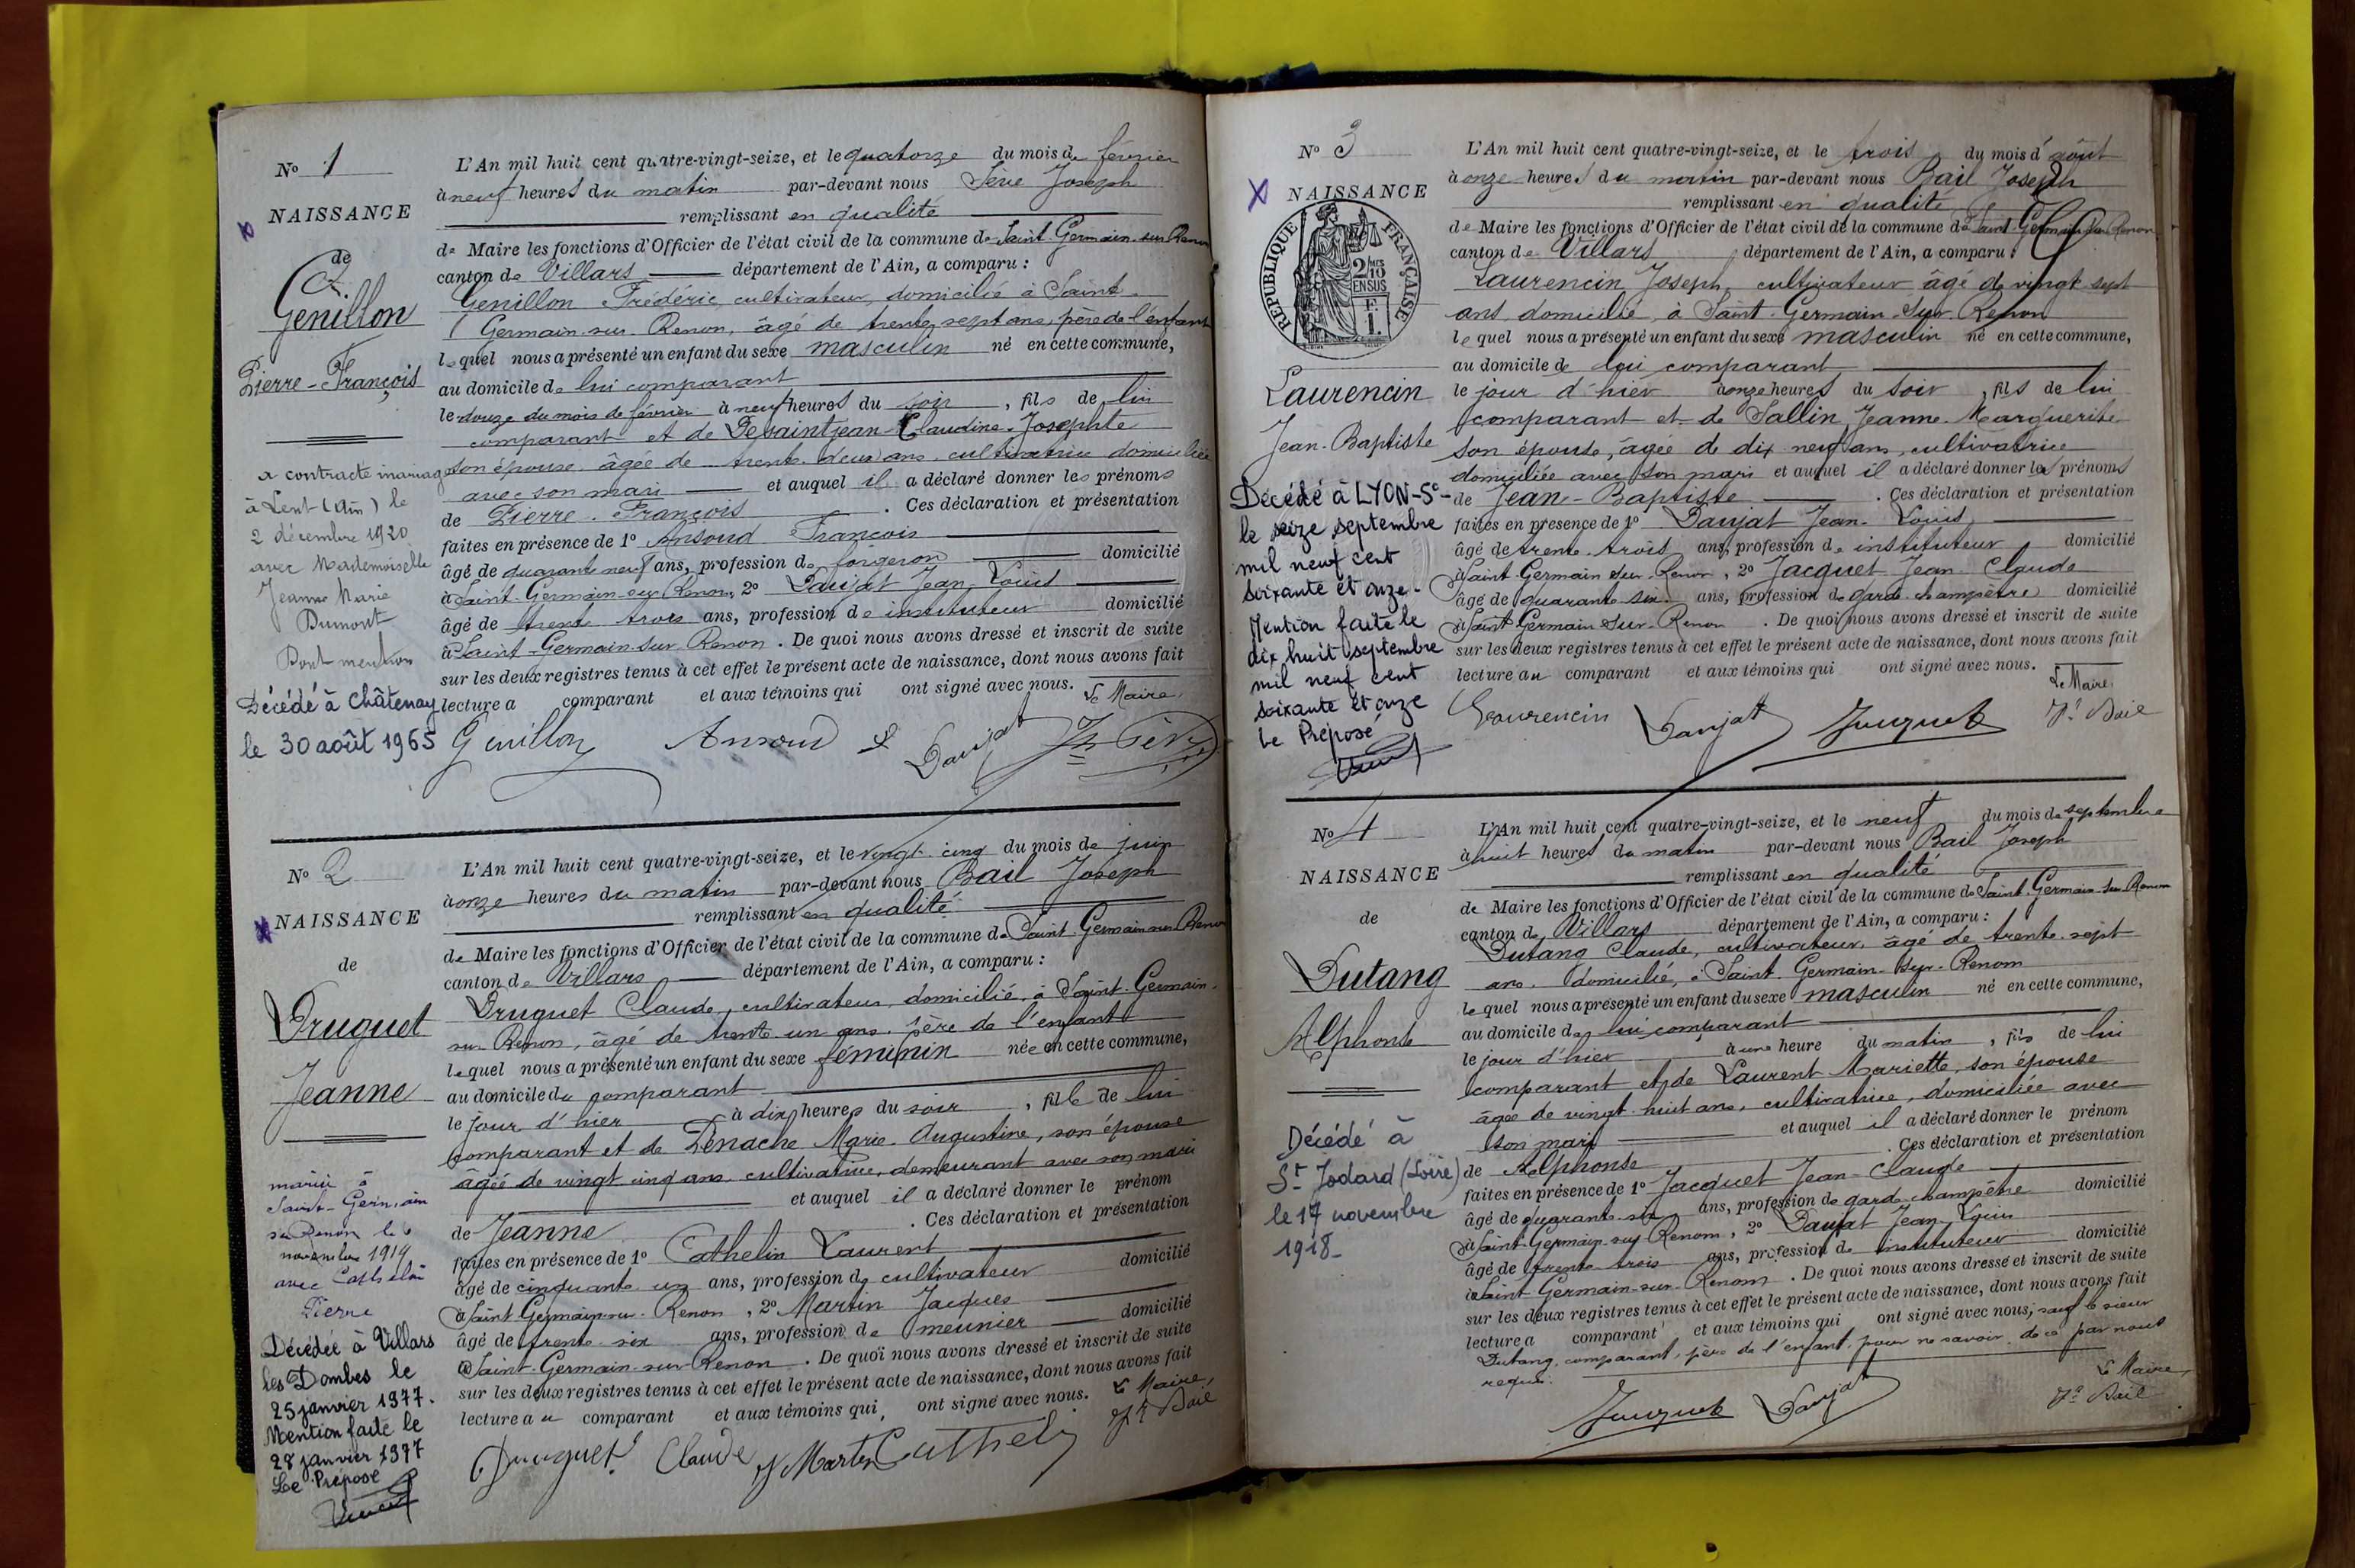 N° 1
NAISSANCE
de
Genillon
Pierre-François
a contracté mariage
à Lent (Ain) le
2 décembre 1920
avec Mademoiselle
Jeanne Marie
Dumont
Dont mention
Décédé à Châtenay
le 30 août 1965
L'An mil huit cent quatre-vingt-seize, et le quatorze du mois de février
à neuf heures du matin par-devant nous Sève Joseph
remplissant en qualité
de Maire les fonctions d'Officier de l'état civil de la commune de Saint-Germain-sur-Renon
canton de Villars département de l'Ain, a comparu :
Genillon Frédéric, cultivateur, domicilié à Saint-
Germain-sur-Renon, âgé de trente sept ans, père de l'enfant
lequel nous a présenté un enfant du sexe masculin né en cette commune,
au domicile de lui comparant
le douze du mois de février à neuf heures du soir, fils de lui
comparant et de Desaintjean Claudine-Josephte
son épouse âgée de trente-deux ans cultivatrice domiciliée
avec son mari et auquel il a déclaré donner les prénoms
de Pierre-François. Ces déclaration et présentation
faites en présence de 1° Ansoud François
âgé de quarante neuf ans, profession de forgeron domicilié
à Saint-Germain-sur-Renon, 2° Daujat Jean Louis
âgé de trente trois ans, profession de instituteur domicilié
à Saint-Germain-sur-Renon. De quoi nous avons dressé et inscrit de suite
sur les deux registres tenus à cet effet le présent acte de naissance, dont nous avons fait
lecture a comparant et aux témoins qui ont signé avec nous. Le Maire,
Genillon Ansoud Daujat Jh Sève
N° 2
NAISSANCE
de
Druguet
Jeanne
mariée à
Saint-Germain
sur Renon le 6
novembre 1919
avec Cathelin
Pierre
Décédée à Villars
les Dombes le
25 janvier 1977.
Mention faite le
28 janvier 1977
Le Préposé
L'An mil huit cent quatre-vingt-seize, et le vingt-cinq du mois de juin
à onze heures du matin par-devant nous Bail Joseph
remplissant en qualité
de Maire les fonctions d'Officier de l'état civil de la commune de Saint-Germain-sur-Renon
canton de Villars département de l'Ain, a comparu :
Druguet Claude, cultivateur, domicilié à Saint-Germain-
sur Renon, âgé de trente un ans père de l'enfant
lequel nous a présenté un enfant du sexe féminin née en cette commune,
au domicile du comparant
le jour d'hier à dix heures du soir, fille de lui
comparant et de Penache Marie-Augustine, son épouse
âgée de vingt cinq ans, cultivatrice, demeurant avec son mari
et auquel il a déclaré donner le prénom
de Jeanne. Ces déclaration et présentation
faites en présence de 1° Cathelin Laurent
âgé de cinquante un ans, profession de cultivateur domicilié
à Saint Germain-sur-Renon, 2° Martin Jacques
âgé de trente-six ans, profession de meunier domicilié
à Saint-Germain-sur-Renon. De quoi nous avons dressé et inscrit de suite
sur les deux registres tenus à cet effet le présent acte de naissance, dont nous avons fait
lecture au comparant et aux témoins qui ont signé avec nous. Le Maire,
Druguet Claude Martin Cathelin Jh Bail
N° 3
NAISSANCE
RÉPUBLIQUE FRANÇAISE
2/10 MES
EN SUS
F.
1.
Laurencin
Jean-Baptiste
Décédé à LYON-5e-
le seize septembre
mil neuf cent
soixante et onze-
Mention faite le
dix huit septembre
mil neuf cent
soixante et onze
Le Préposé
L'An mil huit cent quatre-vingt-seize, et le trois du mois d'août
à onze heures du matin par-devant nous Bail Joseph
remplissant en qualité
de Maire les fonctions d'Officier de l'état civil de la commune de Saint-Germain-sur-Renon
canton de Villars département de l'Ain, a comparu :
Laurencin Joseph, cultivateur âgé de vingt-sept
ans domicilié à Saint-Germain-sur-Renon
lequel nous a présenté un enfant du sexe masculin né en cette commune,
au domicile de lui comparant
le jour d'hier à onze heures du soir, fils de lui
comparant et de Sallin Jeanne-Marguerite
son épouse, âgée de dix neuf ans, cultivatrice
domiciliée avec son mari et auquel il a déclaré donner les prénoms
de Jean-Baptiste. Ces déclaration et présentation
faites en présence de 1° Daujat Jean-Louis
âgé de trente-trois ans, profession de instituteur domicilié
à Saint-Germain-sur-Renon, 2° Jacquet Jean Claude
âgé de quarante-six ans, profession de garde-champêtre domicilié
à Saint Germain-sur-Renon. De quoi nous avons dressé et inscrit de suite
sur les deux registres tenus à cet effet le présent acte de naissance, dont nous avons fait
lecture au comparant et aux témoins qui ont signé avec nous. Le Maire,
Laurencin Daujat Jacquet Jh Bail
N° 4
NAISSANCE
de
Dutang
Alphonse
Décédé à
St Jodard (Loire)
le 17 novembre
1918-
L'An mil huit cent quatre-vingt-seize, et le neuf du mois de septembre
à huit heures du matin par-devant nous Bail Joseph
remplissant en qualité
de Maire les fonctions d'Officier de l'état civil de la commune de Saint-Germain-sur-Renon
canton de Villars département de l'Ain, a comparu :
Dutang Claude, cultivateur, âgé de trente-sept
ans, domicilié, à Saint-Germain-sur-Renom
lequel nous a présenté un enfant du sexe masculin né en cette commune,
au domicile de lui comparant
le jour d'hier à une heure du matin, fils de lui
comparant et de Laurent Mariette, son épouse
âgée de vingt-huit ans, cultivatrice, domiciliée avec
son mari et auquel il a déclaré donner le prénom
de Alphonse. Ces déclaration et présentation
faites en présence de 1° Jacquet Jean-Claude
âgé de quarante-six ans, profession de garde-champêtre domicilié
à Saint-Germain-sur-Renom, 2° Daujat Jean-Louis
âgé de trente-trois ans, profession de instituteur domicilié
à Saint Germain-sur-Renom. De quoi nous avons dressé et inscrit de suite
sur les deux registres tenus à cet effet le présent acte de naissance, dont nous avons fait
lecture a comparant et aux témoins qui ont signé avec nous, sauf le sieur
Dutang, comparant, père de l'enfant, pour ne savoir, de ce par nous
requis.
Le Maire,
Jacquet Daujat Jh Bail